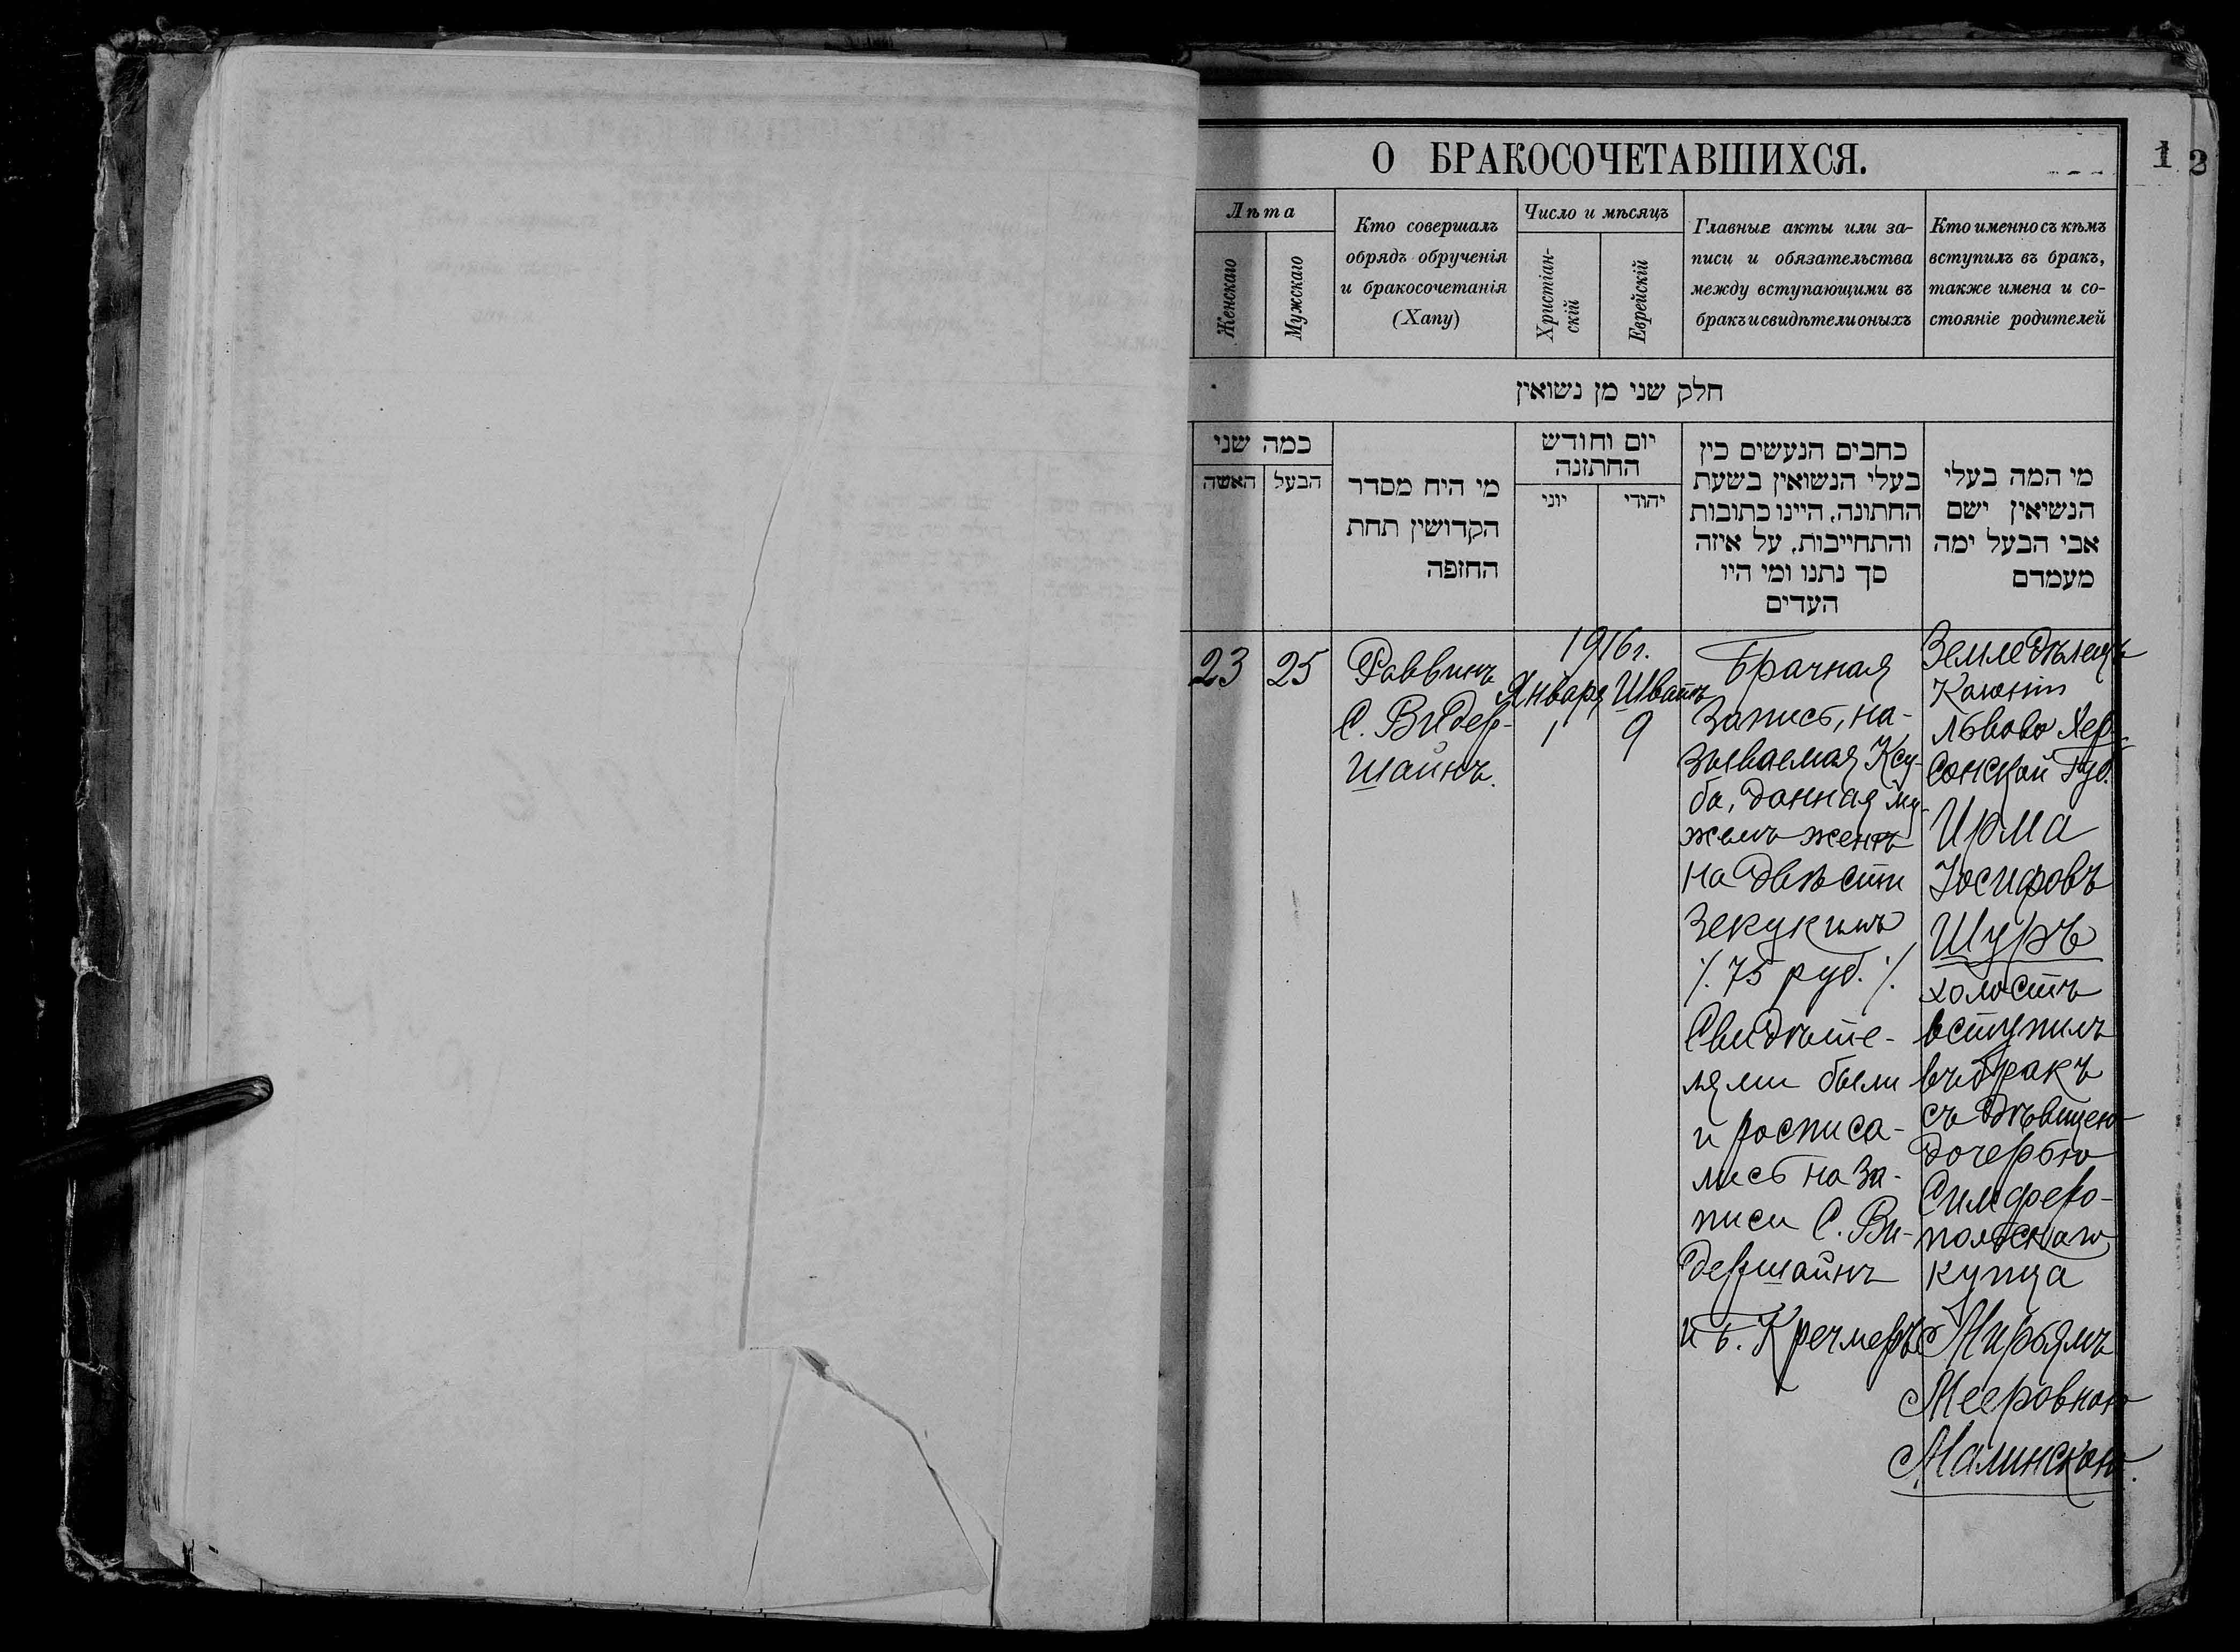 О БРАКОСОЧЕТАВШИХСЯ.
1 2
Лѣта
Женскаго
Мужскаго
Кто совершалъ
обрядъ обрученія
и бракосочетанія
(Хапу)
Число и мѣсяцъ
Христіан-
скій
Еврейскій
Главные акты или за-
писи и обязательства
между вступающими въ
бракъ и свидѣтели оныхъ
Кто именно съ кѣмъ
вступилъ въ бракъ,
также имена и со-
стояніе родителей
חלק שני מן נשואין
כמה שני
האשה
הבעל
מי היח מסדר
הקדושין תחת
החזפה
יום וחודש
החתזנה
יוני
יהודי
כחבים הנעשים כין
בעלי הנשואין בשעת
החתונה, היינו כתובות
והתחייבות, על איזה
סך נתנו ומי היו
העדים
מי המה בעלי
הנשיאין ישם
אבי הבעל ימה
מעמדם
23
25
Раввинъ
С. Видер-
шайнъ.
1916 г.
Января
1
Шватъ
9
Брачная
запись, на-
зываемая Ксу-
ба, данная му-
жемъ женѣ
на двѣсти
зекукимъ
/. 75 руб. /.
Свидѣте-
лями были
и росписа-
лись на за-
писи С. Ви-
дершайнъ
и Б. Кречмеръ
Земледѣлецъ
Колоніи
Львово Хер-
сонской Губ.
Ирма
Іосифовъ
Шуръ
холостъ
вступилъ
въ бракъ
съ дѣвицею
дочерью
Симферо-
польскаго
купца
Мирьямъ
Мееровною
Малинскою.